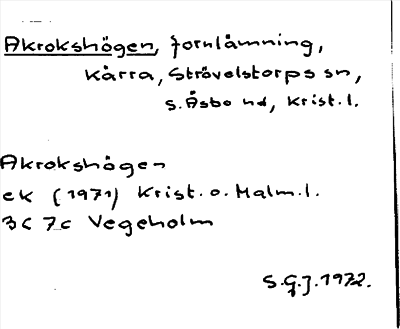 Akrokshögen, fornlämning,
Kärra, Strövelstorps sn,
S. Åsbo hd, Krist.l.
Akrokshögen
ek (1971) Krist.o.Malm.l.
3C 7c Vegeholm
S.G.J. 1972.